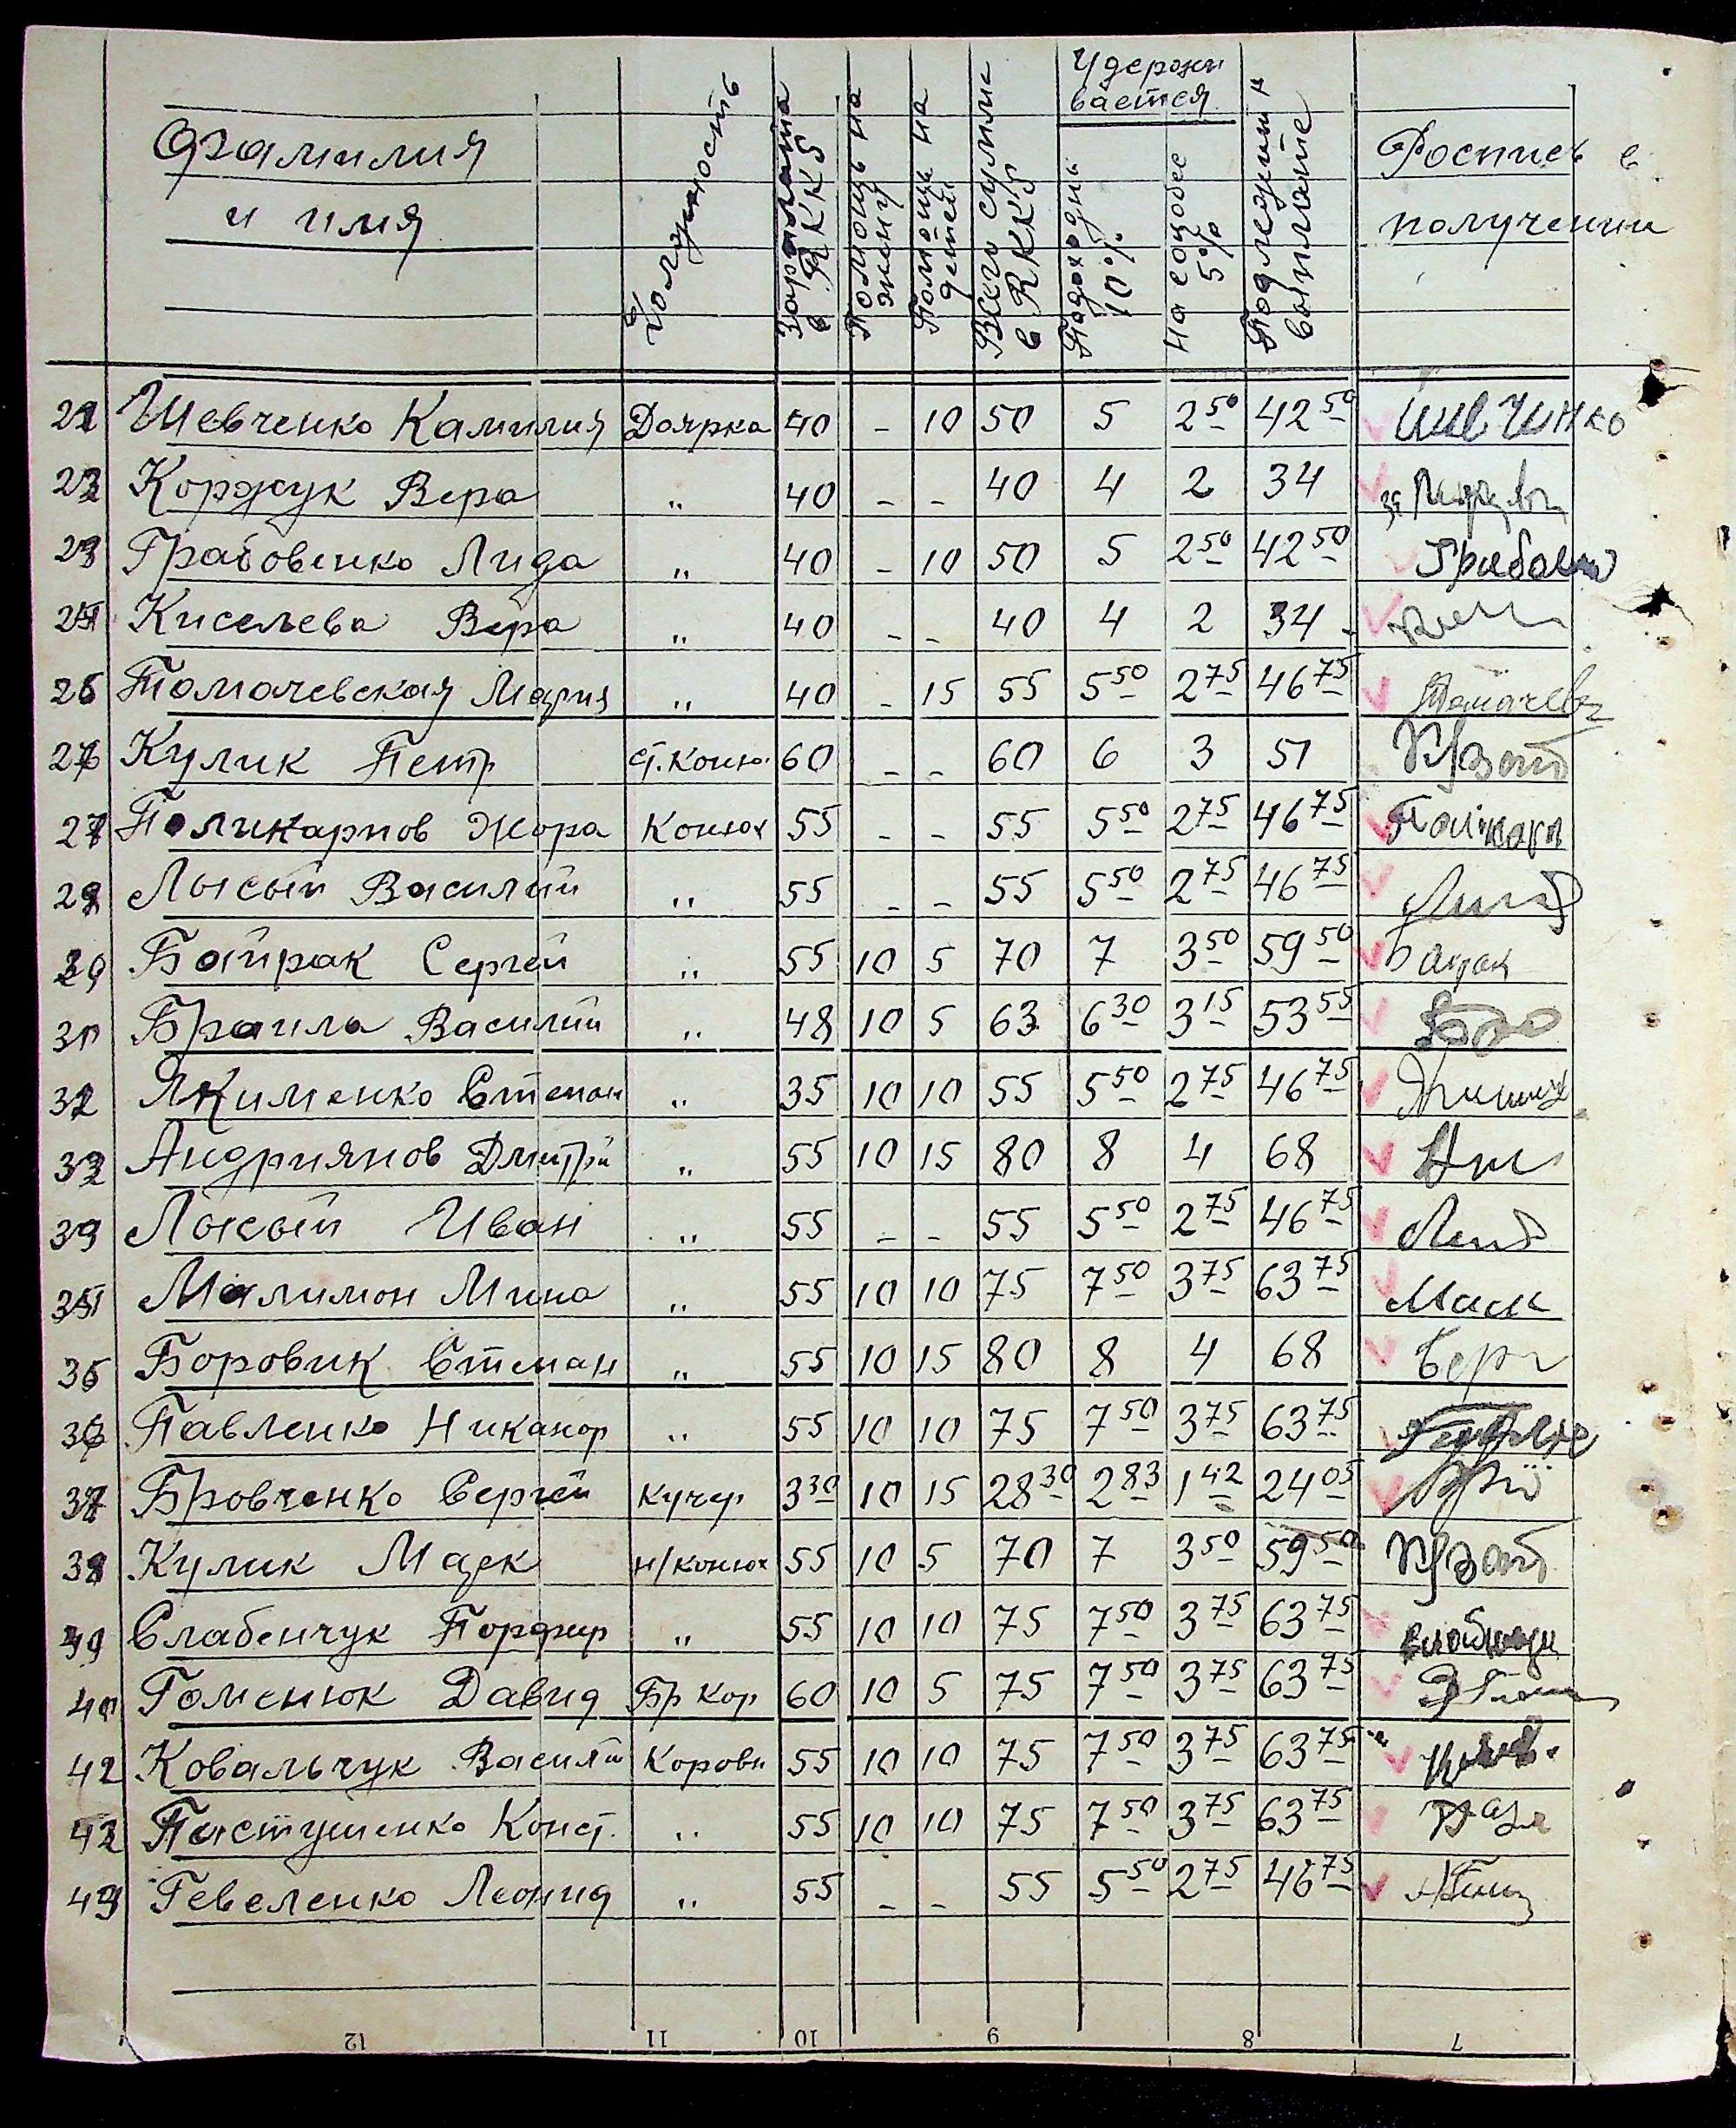 Фамилия и имя Должность Зарплата в RKKS Помощь на жену Помощь на детей Всего сумма в RKKS Удержи вается Подоходн 10% На соцобес 5% Подлежит к выплате Роспись в получении
22 Шевченко Камилия Доярка 40 - 10 50 5 2 50 42 50 Шевченко
23 Коржук Вера " 40 - - 40 4 2 34 за
23 Грабовенко Лида " 40 - 10 50 5 2 50 42 50 Грабовен
25 Киселева Вера " 40 - - 40 4 2 34
26 Томачевская Мария " 40 - 15 55 5 50 2 75 46 75 Томачев
27 Кулик Петр ст. Конюх 60 - - 60 6 3 51
27 Поликарпов Жора Конюх 55 - - 55 5 50 2 75 46 75 Поликарп
29 Лысый Василий " 55 - - 55 5 50 2 75 46 75
30 Байрак Сергей " 55 10 5 70 7 3 50 59 50 Байрак
31 Браила Василий " 48 10 5 63 6 30 3 15 53 55
32 Якименко Степан " 35 10 10 55 5 50 2 75 46 75
33 Андриянов Дмитрий " 55 10 15 80 8 4 68
33 Лысый Иван " 55 - - 55 5 50 2 75 46 75
35 Малимон Мина " 55 10 10 75 7 50 3 75 63 75
36 Боровик Степан " 55 10 15 80 8 4 68
36 Павленко Никанор " 55 10 10 75 7 50 3 75 63 75
37 Бровченко Сергей Кучер 3 30 10 15 28 30 2 83 1 42 24 05
38 Кулик Марк н/конюх 55 10 5 70 7 3 50 59 50
39 Слабенчук Порфир " 55 10 10 75 7 50 3 75 63 75
40 Гоменюк Давид Бр Кор 60 10 5 75 7 50 3 75 63 75
42 Ковальчук Василий Коровн 55 10 10 75 7 50 3 75 63 75
42 Пастушенко Конст. " 55 10 10 75 7 50 3 75 63 75
43 Гевеленко Леонид " 55 - - 55 5 50 2 75 46 75
12 11 10 9 8 7